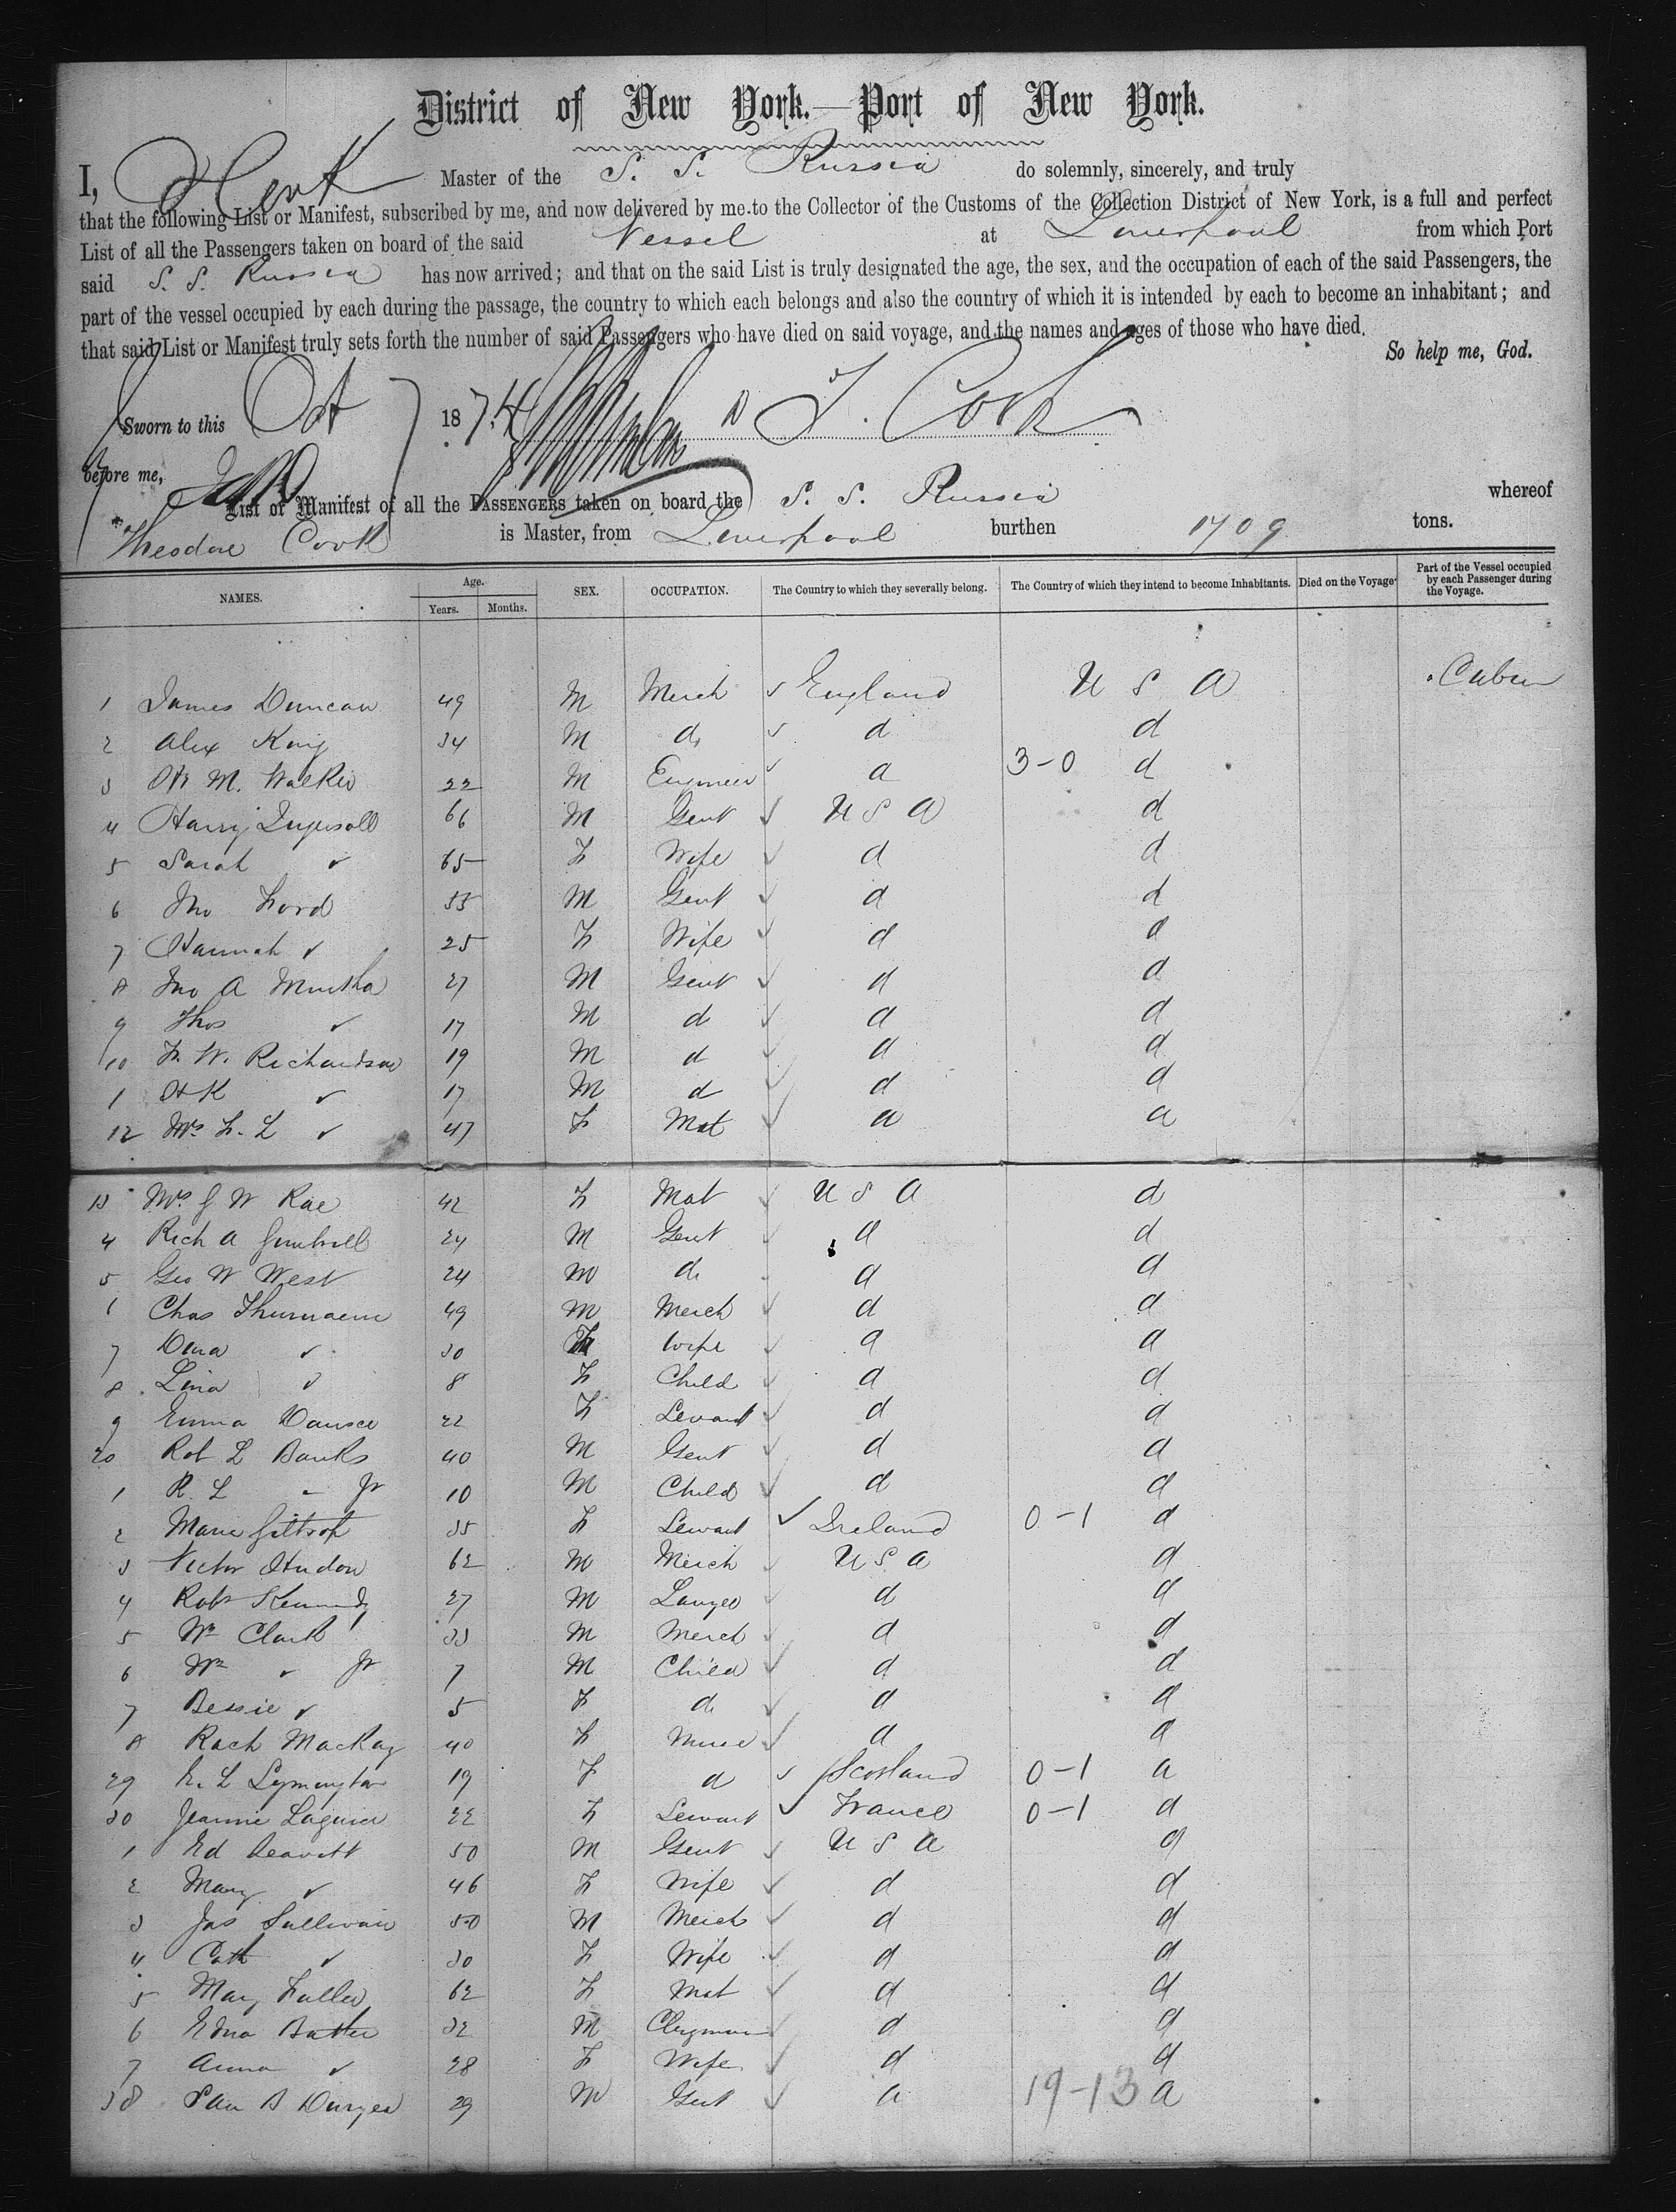 District of New York.—Port of New York.
I, Master of the S. S. Russia do solemnly, sincerely, and truly
that the following List or Manifest, subscribed by me, and now delivered by me to the Collector of the Customs of the Collection District of New York, is a full and perfect
List of all the Passengers taken on board of the said Vessel at Liverpool from which Port
said S. S. Russia has now arrived; and that on the said List is truly designated the age, the sex, and the occupation of each of the said Passengers, the
part of the vessel occupied by each during the passage, the country to which each belongs and also the country of which it is intended by each to become an inhabitant; and
that said List or Manifest truly sets forth the number of said Passengers who have died on said voyage, and the names and ages of those who have died.
So help me, God.
Sworn to this Oct 7 1874 T. Cook
before me,
List or Manifest of all the PASSENGERS taken on board the S. S. Russia whereof
Theodore Cook is Master, from Liverpool burthen 1709 tons.
NAMES. Age. Years. Months. SEX. OCCUPATION. The Country to which they severally belong. The Country of which they intend to become Inhabitants. Died on the Voyage. Part of the Vessel occupied by each Passenger during the Voyage.
1 James Duncan 49 M Merch England U S A Cabin
2 Alex King 34 M do d d
3 M. Walker 22 M Engineer d 3-0 d
4 Harry Ingersoll 66 M Gent U S A d
5 Sarah " 65 F Wife d d
6 Jno Ford 35 M Gent d d
7 Hannah " 25 F Wife d d
8 Jno A Murtha 27 M Gent d d
9 Thos " 17 M d d d
10 F. W. Richardson 19 M d d d
1 H K " 17 M d d d
12 Mrs F. L " 47 F Mat d d
13 Mrs J W Rae 42 F Mat U S A d
4 Rich A 24 M Gent d d
5 Geo W West 24 M do d d
6 Chas 49 M Merch d d
7 " 30 F Wife d d
8 Lina " 8 F Child d d
9 Emma 22 F Servant d d
20 Rob L Banks 40 M Gent d d
1 R. L " Jr 10 M Child d d
2 Marie 35 F Servant Ireland 0-1 d
3 Victor Hudon 62 M Merch U S A d
4 Robt Kennedy 27 M Lawyer d d
5 Wm Clark 33 M Merch d d
6 Wm " Jr 7 M Child d d
7 Bessie " 5 F do d d
8 Rach MacKay 40 F Nurse d d
29 E. L Symington 19 F d Scotland 0-1 d
30 Jeannie 22 F Servant France 0-1 d
1 Ed Leavitt 50 M Gent U S A d
2 Mary " 46 F Wife d d
3 Jas Sullivan 50 M Merch d d
4 Cath " 30 F Wife d d
5 Mary Fuller 62 F Mat d d
6 32 M Clergman d d
7 Anna " 28 F Wife d d
38 B Duryea 29 M Gent d 19-13 d